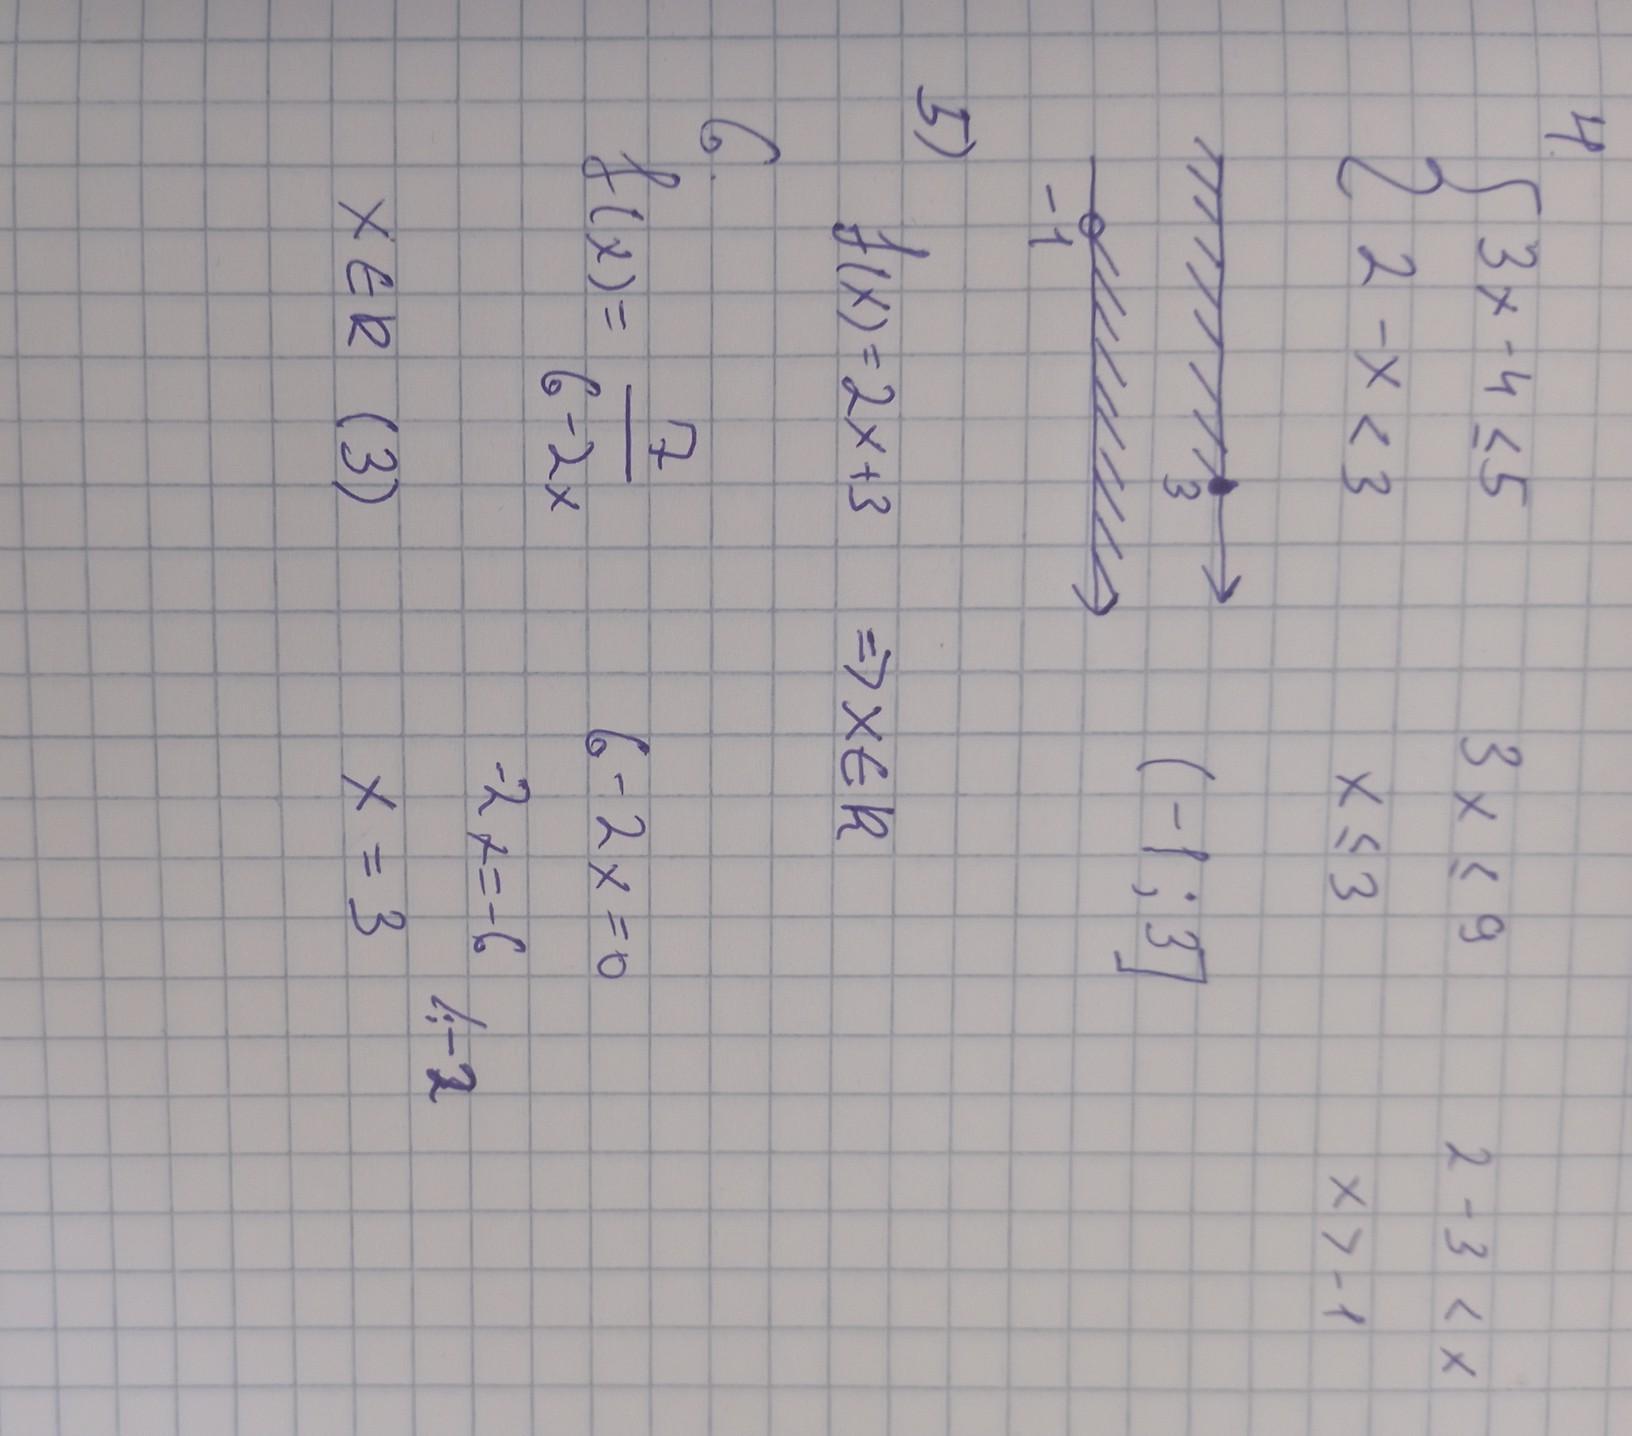 4.
{ 3x - 4 ≤ 5
2 - x < 3
3x ≤ 9
x ≤ 3
2 - 3 < x
x > -1
3
-1
(-1; 3]
5)
f(x) = 2x+3 => x ∈ R
6.
f(x) = 7/(6-2x)
x ∈ R (3)
6 - 2x = 0
-2x = -6 /:-2
x = 3